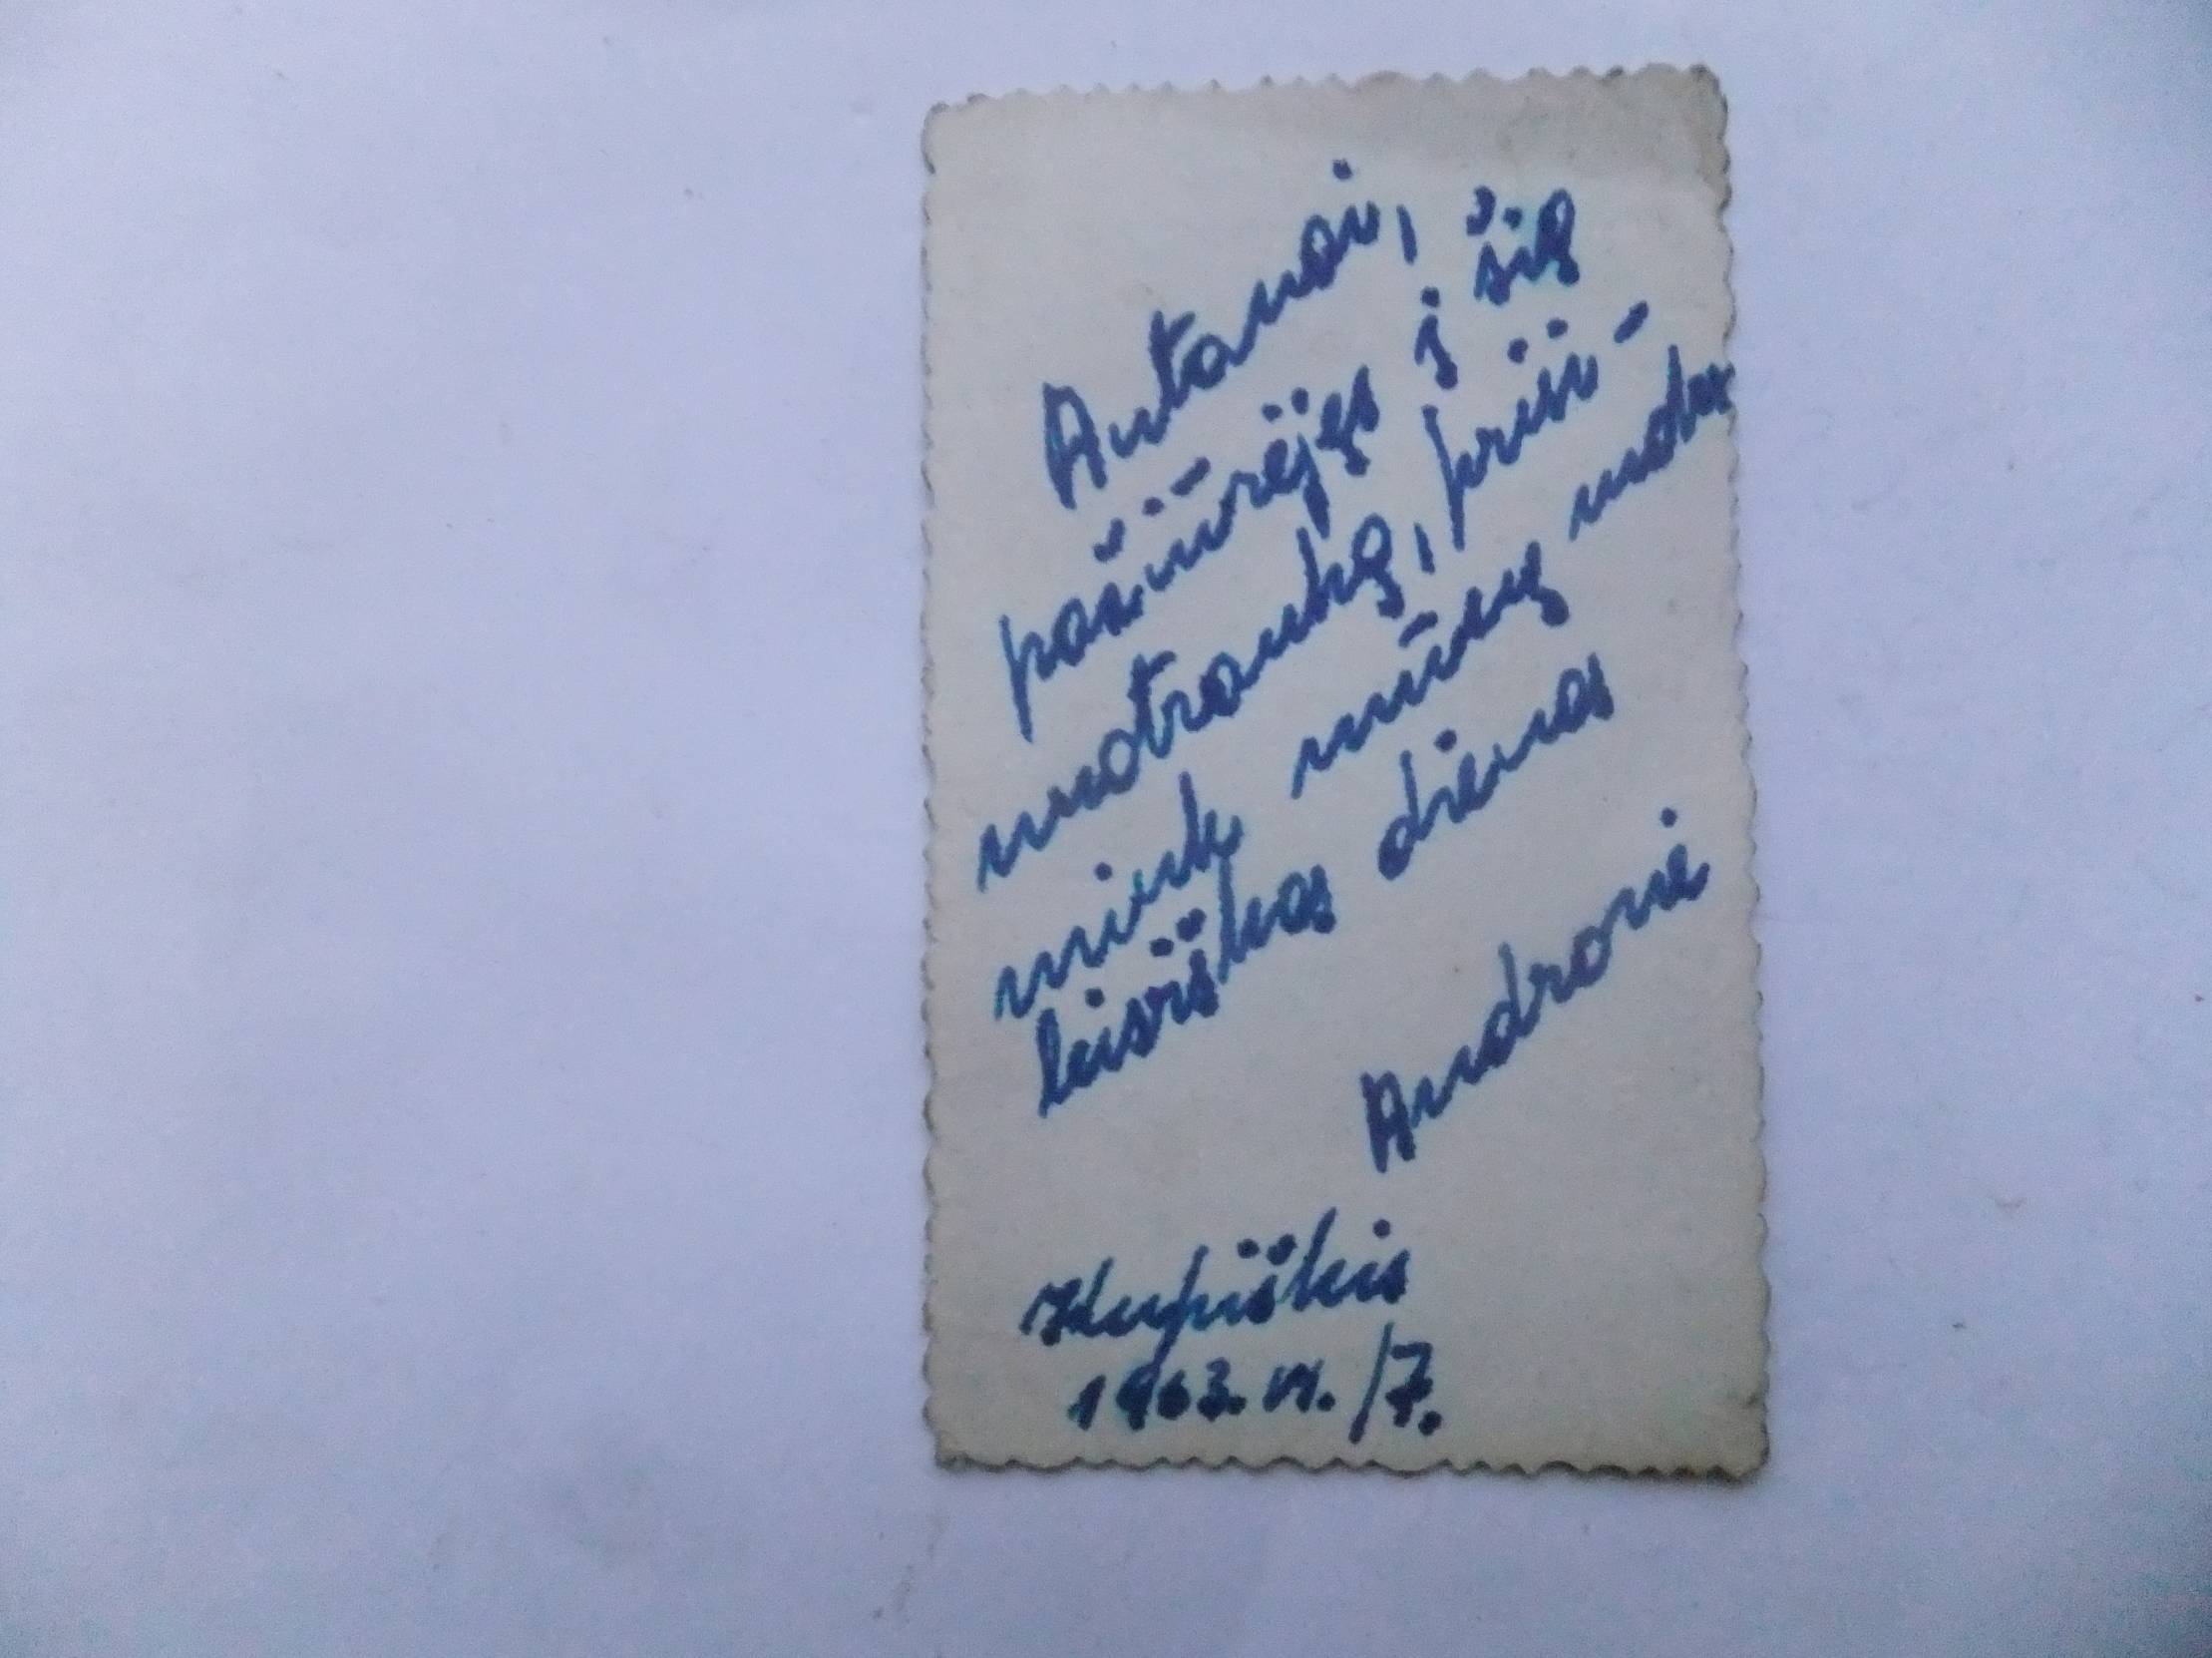 Antanai,
pažiūrėjęs į šią
nuotrauką, prisi-
mink mūsų moks
leiviškas dienas
Andronė
Kupiškis
1963.VI./7.